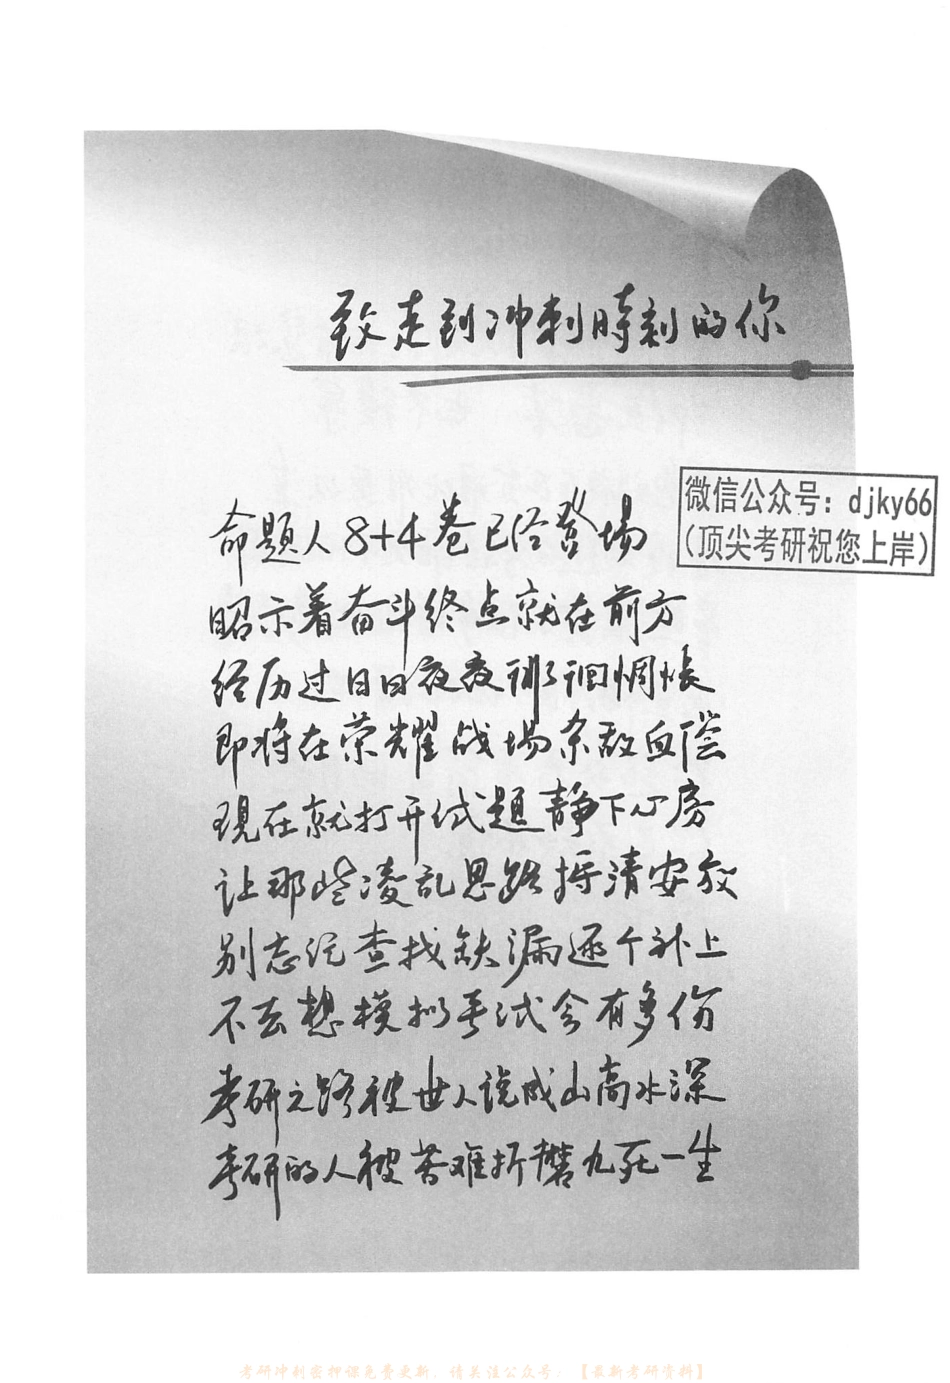 致走到冲刺時刻的你
微信公众号：djky66
（顶尖考研祝您上岸）
命題人8+4卷已经登場
昭示着奋斗终点就在前方
经历过日日夜夜徘徊惆怅
即将在荣耀战場杀敌血偿
現在就打开试題静下心房
让那些凌乱思路捋清安放
别忘记查找缺漏逐个补上
不去想模拟考试会有多伤
考研之路被世人说成山高水深
考研的人被苦难折磨九死一生
考研冲刺密押课免费更新，请关注公众号：【最新考研资料】